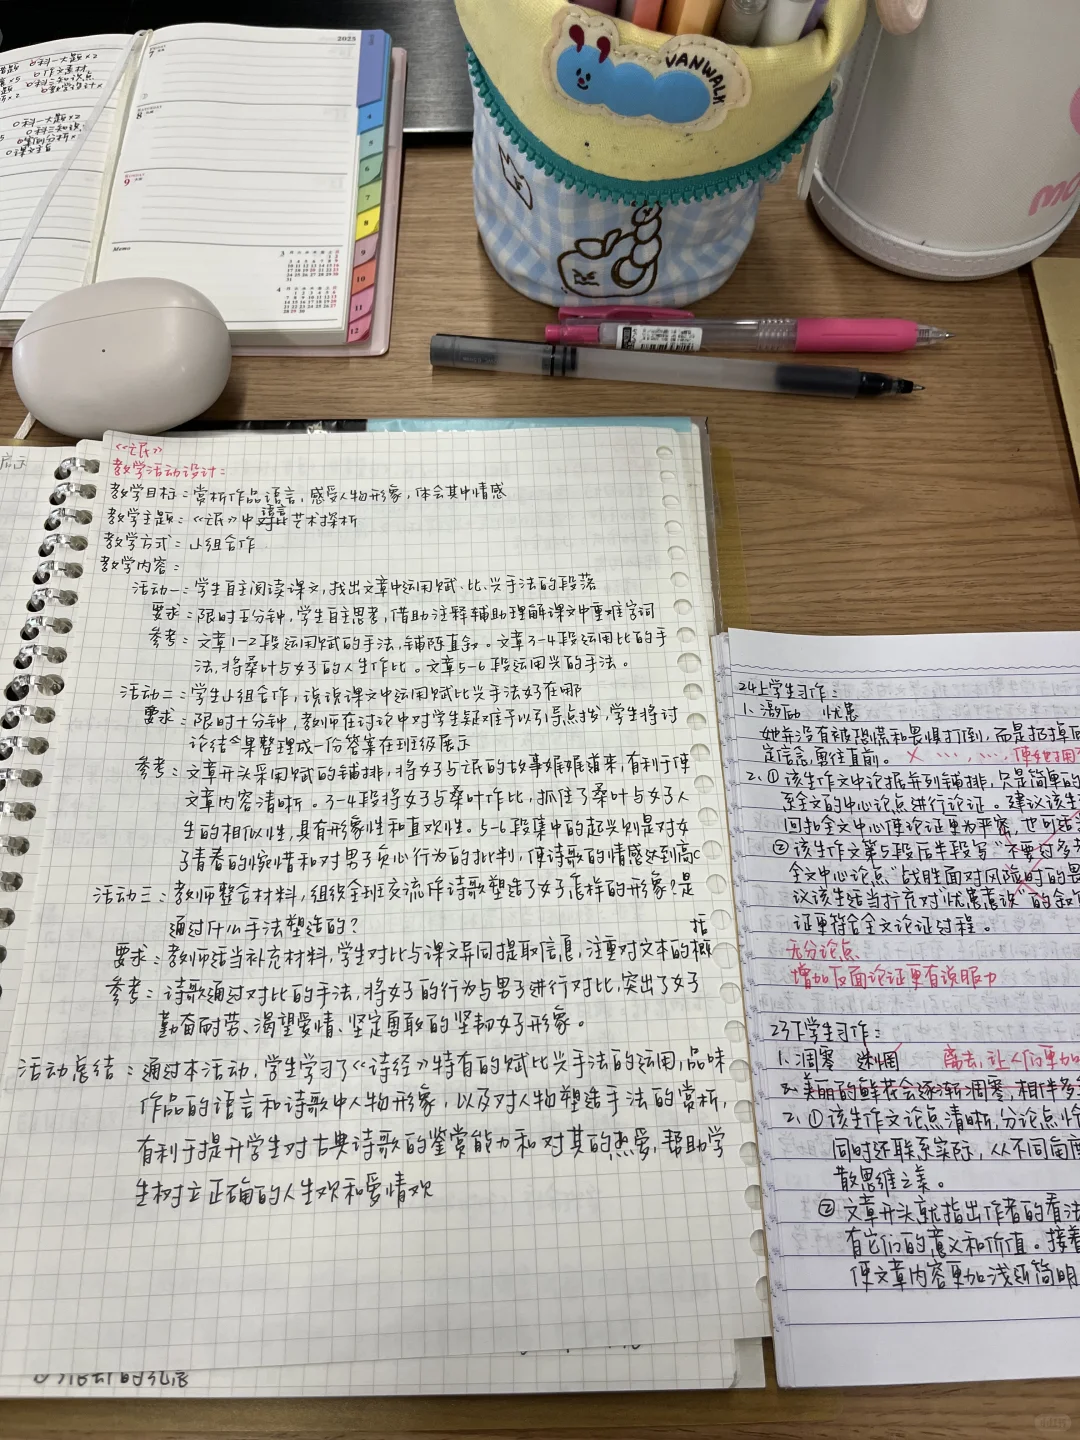 2025
7
8
9
Memo
3
4
4
5
6
7
8
9
10
11
12
VANWALK
《氓》
教学活动设计：
教学目标：赏析作品语言，感受人物形象，体会其中情感
教学主题：《氓》中语言艺术探析
教学方式：小组合作
教学内容：
活动一：学生自主阅读课文，找出文章中运用赋、比、兴手法的段落
要求：限时五分钟，学生自主思考，借助注释辅助理解课文中重难字词
参考：文章1-2段运用赋的手法，铺陈直叙。文章3-4段运用比的手
法，将桑叶与女子的人生作比。文章5-6段运用兴的手法。
活动二：学生小组合作，说说课文中运用赋比兴手法好在哪
要求：限时十分钟，教师在讨论中对学生疑难予以引导点拨，学生将讨
论结果整理成一份答案在班级展示
参考：文章开头采用赋的铺排，将女子与氓的故事娓娓道来，有利于使
文章内容清晰。3-4段将女子与桑叶作比，抓住了桑叶与女子人
生的相似性，具有形象性和直观性。5-6段集中的起兴则是对女
子青春的惋惜和对男子负心行为的批判，使诗歌的情感达到高
活动三：教师整合材料，组织全班交流作诗歌塑造了女子怎样的形象？是
通过什么手法塑造的？
要求：教师适当补充材料，学生对比与课文异同提取信息，注重对文本的概括
参考：诗歌通过对比的手法，将女子的行为与男子进行对比，突出了女子
勤奋耐劳、渴望爱情、坚定勇敢的坚韧女子形象。
活动总结：通过本活动，学生学习了《诗经》特有的赋比兴手法的运用，品味
作品的语言和诗歌中人物形象，以及对人物塑造手法的赏析，
有利于提升学生对古典诗歌的鉴赏能力和对其的热爱，帮助学
生树立正确的人生观和爱情观
24上学生习作：
1、 忧患
她并没有被恐慌和畏惧打倒，而是
定信念，勇往直前。
2、①该生作文中论据并列铺排，只是简单的
系全文的中心论点进行论证。建议该生
回扣全文中心使论证更为严密，也可适当
②该生作文第5段后半段写"不要过多
全文中心论点"战胜面对风险时的畏
议该生适当扩充对"忧患意识"的叙
证更符合全文论证过程。
无分论点
增加反面论证更有说服力
23下学生习作：
1、凋零
美丽的鲜花会逐渐凋零，相伴多
2、①该生作文论点清晰，分论点
同时还联系实际，从不同角度
散思维之美。
②文章开头就指出作者的看法
有它们的意义和价值。接着
使文章内容更加浅近简明